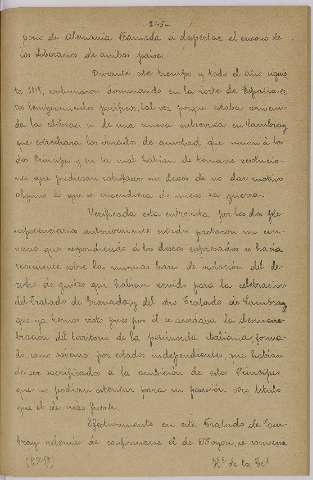 245-
pono de Alemania llamada a despertar el encono de
los soberanos de ambos paises.
Durante este tiempo y todo el año siguien
te 1517, continuaron dominando en la corte de España
los temperamentos pacificos, tal vez porque estaba
la celebracion de una nueva entrevista en Cambray
que estrechara los vinculos de amistad que unian á los
dos Principes y en la cual habian de tomarse resolucio-
nes que pudieran satisfacer sus deseos de no dar motivo
alguno á que se encendiera de nuevo la guerra.
Verificada esta entrevista por los dos ple-
nipotenciarios autorizaronse ambos pactaron un con-
venio que respondiendo á los deseos expresados se basa
sobre la misma base de violación del de-
recho de gentes que habian servido para la celebracion
del Tratado de Granada y del otro Tratado de Cambray
que ya hemos visto pues por él se acordaba la desmem-
bracion del territorio de la peninsula italiana forma-
do como estaba por estados independientes que habian
de ser sacrificados a la ambicion de estos Principes
que no podian ostentar para su posesión otro titulo
que el de mas fuerte.
Efectivamente en este Tratado de Cam-
bray además de confirmarse el de Noyon, se convenia